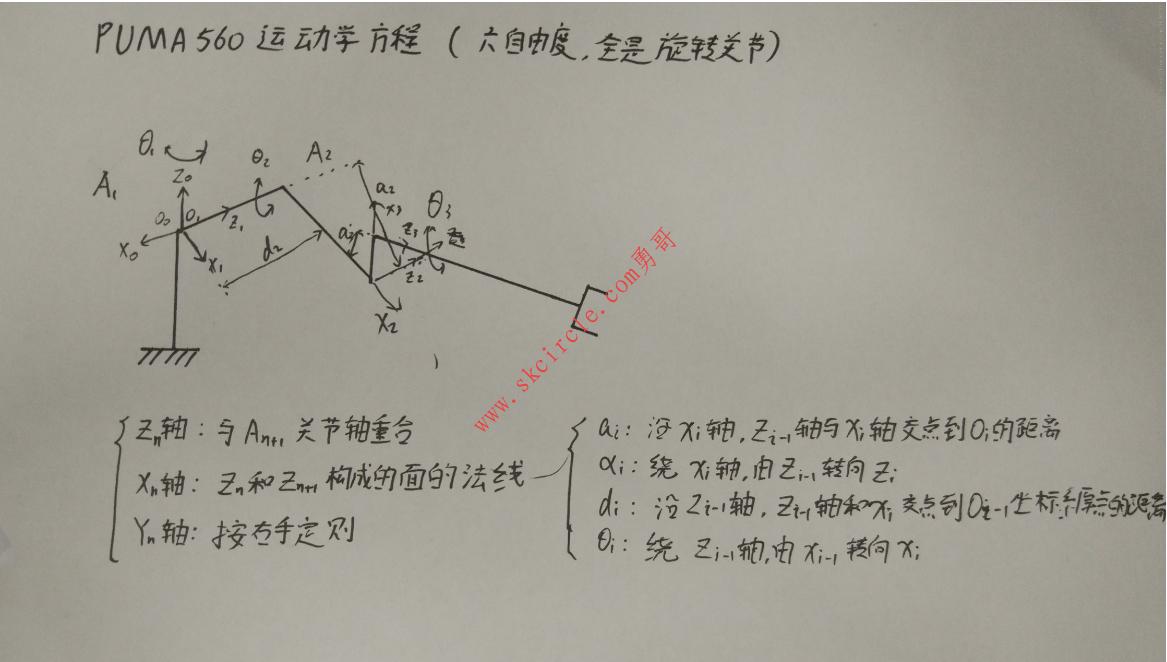 PUMA 560 运动学方程 ( 六自由度, 全是旋转关节)
θ₁
θ₂
A₂
A₁
Z₀
a₂
X₃
θ₃
O₀
O₁
Z₁
X₀
X₁
d₂
a₃
Z₃
Z₂
X₂
www.skcircle.com勇哥
Zₙ轴: 与Aₙ₊₁关节轴重合
Xₙ轴: Zₙ和Zₙ₊₁构成的面的法线
Yₙ轴: 按右手定则
aᵢ: 沿xᵢ轴, Zᵢ₋₁轴与xᵢ轴交点到Oᵢ的距离
αᵢ: 绕xᵢ轴, 由Zᵢ₋₁转向Zᵢ
dᵢ: 沿Zᵢ₋₁轴, Zᵢ₋₁轴和xᵢ交点到Oᵢ₋₁坐标系原点的距离
θᵢ: 绕Zᵢ₋₁轴, 由xᵢ₋₁转向xᵢ